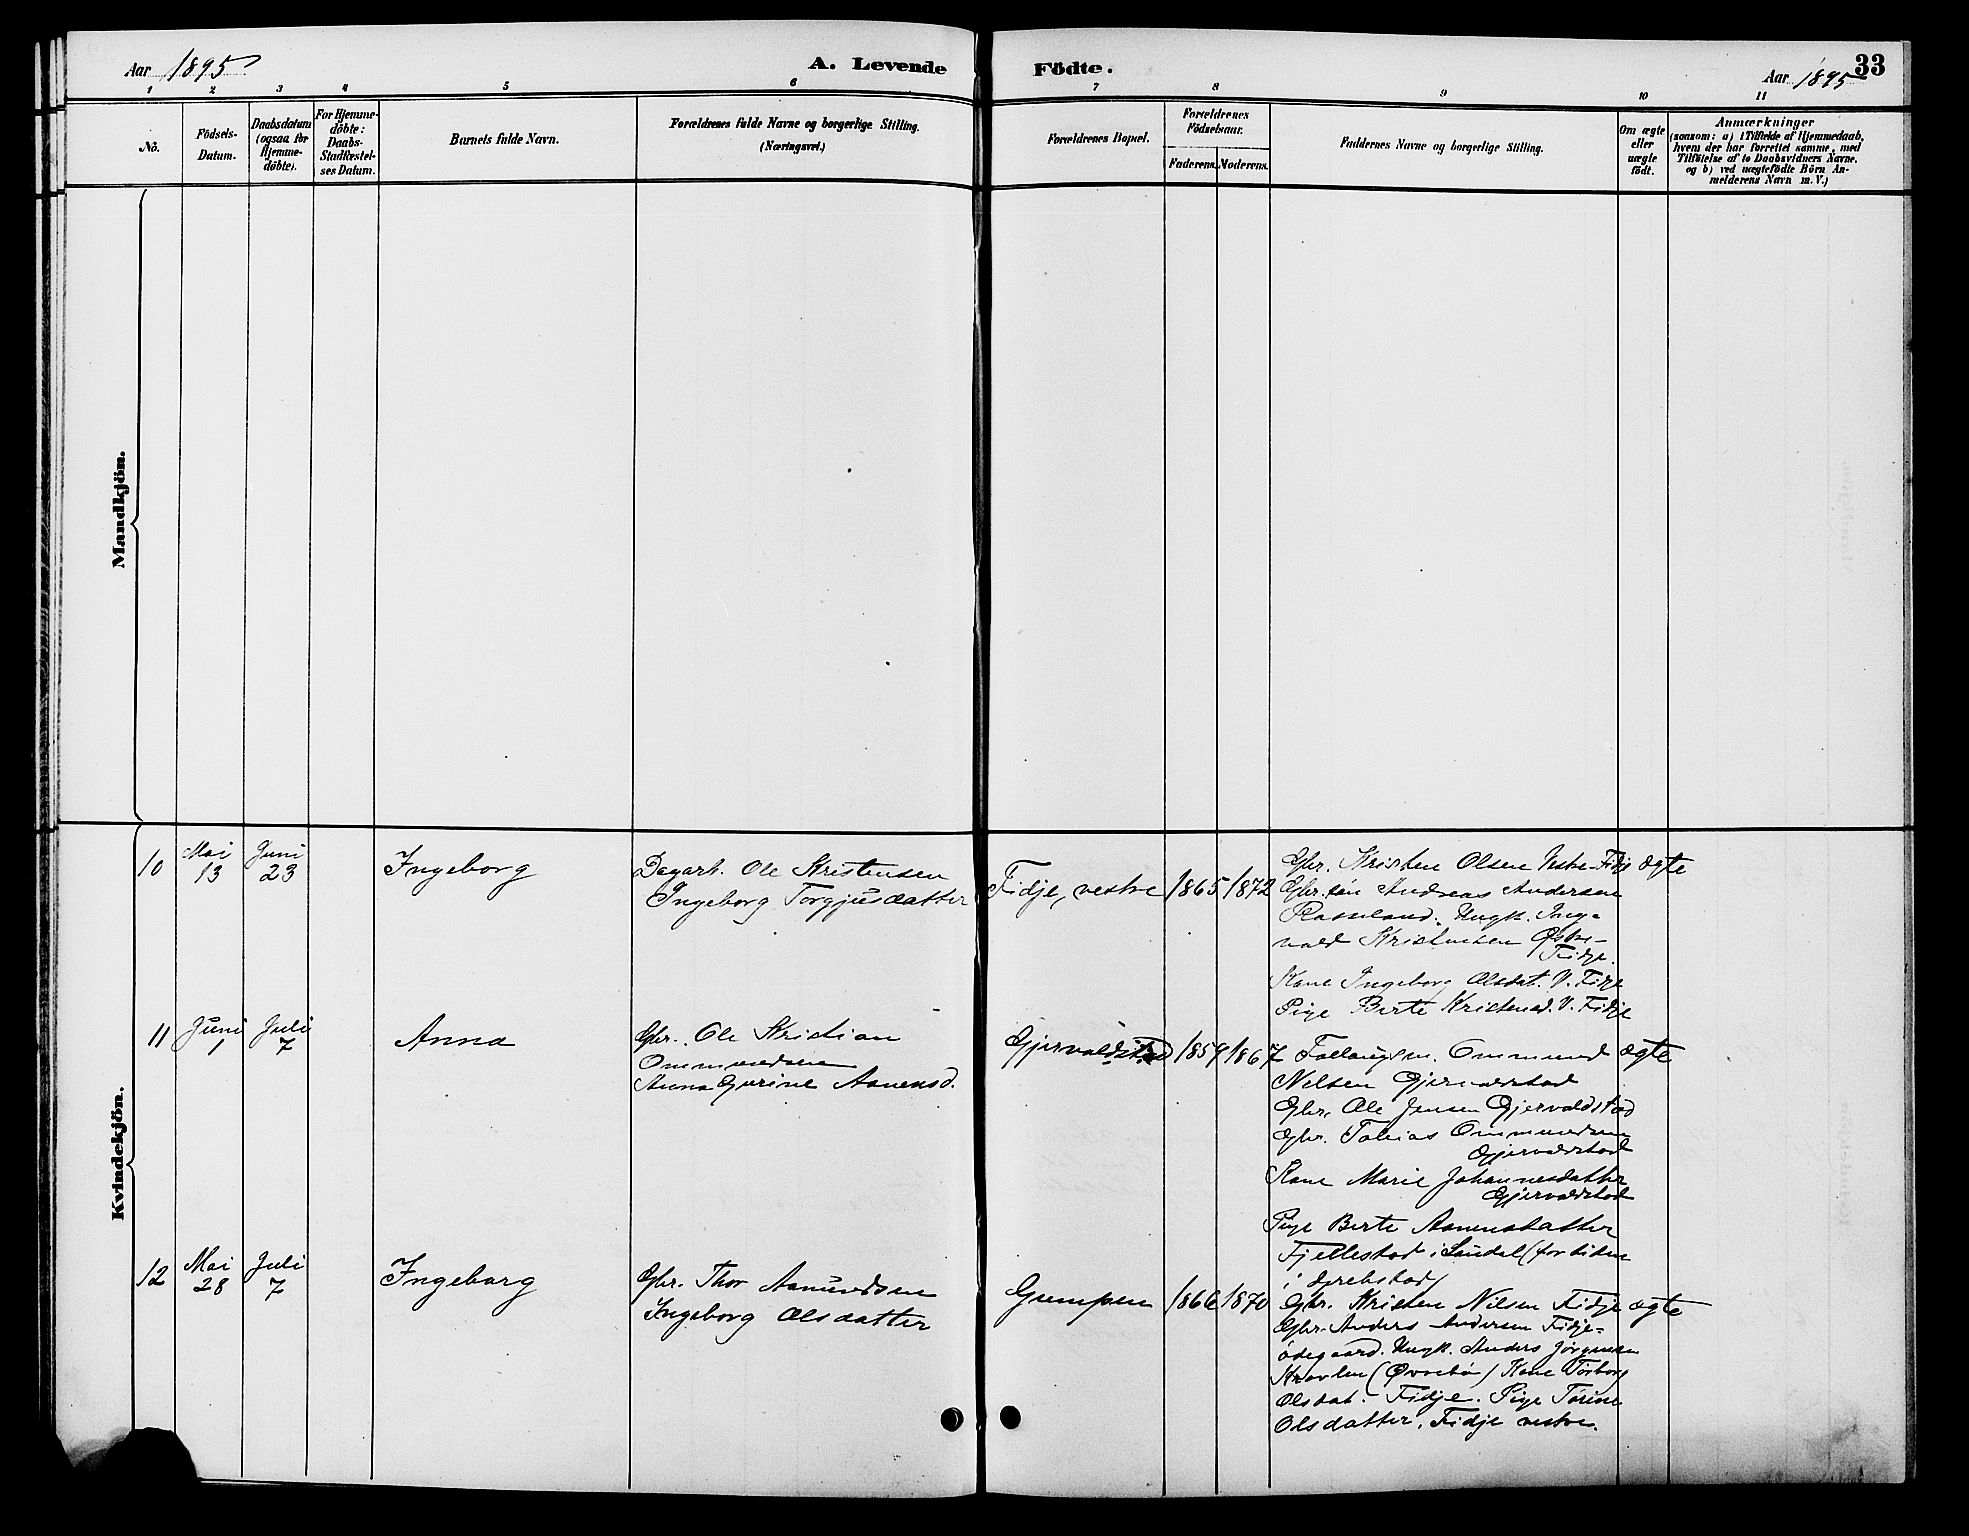 Aar 1895
A. Levende
Födte.
Aar 1895
33
1 2 3 4 5 6 7 8 9 10 11
No.
Födsels-
Datum.
Daabsdatum
(ogsaa for
Hjemme-
döbte).
For Hjemme-
döbte:
Daabs-
Stadfæstel-
ses Datum.
Barnets fulde Navn.
Forældrenes fulde Navne og borgerlige Stilling.
(Næringsvei.)
Forældrenes Bopæl.
Forældrenes
Födselsaar.
Faderens.
Moderens.
Faddernes Navne og borgerlige Stilling.
Om ægte
eller
uægte
födt.
Anmærkninger
(saasom: a) i Tilfælde af Hjemmedaab,
hvem der har forrettet samme, med
Tilföielse af to Daabsvidners Navne,
og b) ved uægtefödte Börn An-
melderens Navn m. V.)
Mandkjön.
Kvindekjön.
10
Mai
13
Juni
23
Ingeborg
Dagarb. Ole Kristensen
Ingeborg Torgjusdatter
Fidje, vestre
1865
1872
Gbr. Kristen Olsen Vestre-Fidje
Gbr. søn Andreas Andersen
Rosseland. Ungk. Ing-
vald Kristensen Østre-
Fidje.
Kone Ingeborg Olsdat. V. Fidje
Pige Berte Kristensd. V. Fidje
ægte
11
Juni
1
Juli
7
Anna
Gbr. Ole Kristian
Ommundsen
Anna Gurine Aanensd.
Gjervaldstad
1859
1867
Ommund
Nilsen Gjervaldstad
Gbr. Ole Jensen Gjervaldstad
Gbr. Tobias Ommundsen
Gjervaldstad
Kone Marie Johannesdatter
Gjervaldstad
Pige Berte Aanensdatter
Fjellestad i Laudal (for tiden
i
ægte
12
Mai
28
Juli
7
Ingeborg
Gbr. Thor Asmundsen
Ingeborg Olsdatter
Gumpen
1866
1870
Gbr. Kristen Nilsen Fidje
Gbr. Anders Andersen Fidje-
ødegaard. Ungk. Anders Jörgensen
(Øvrebø) Kone Torborg
Olsdat. Fidje. Pige Torine
Olsdatter, Fidje vestre.
ægte